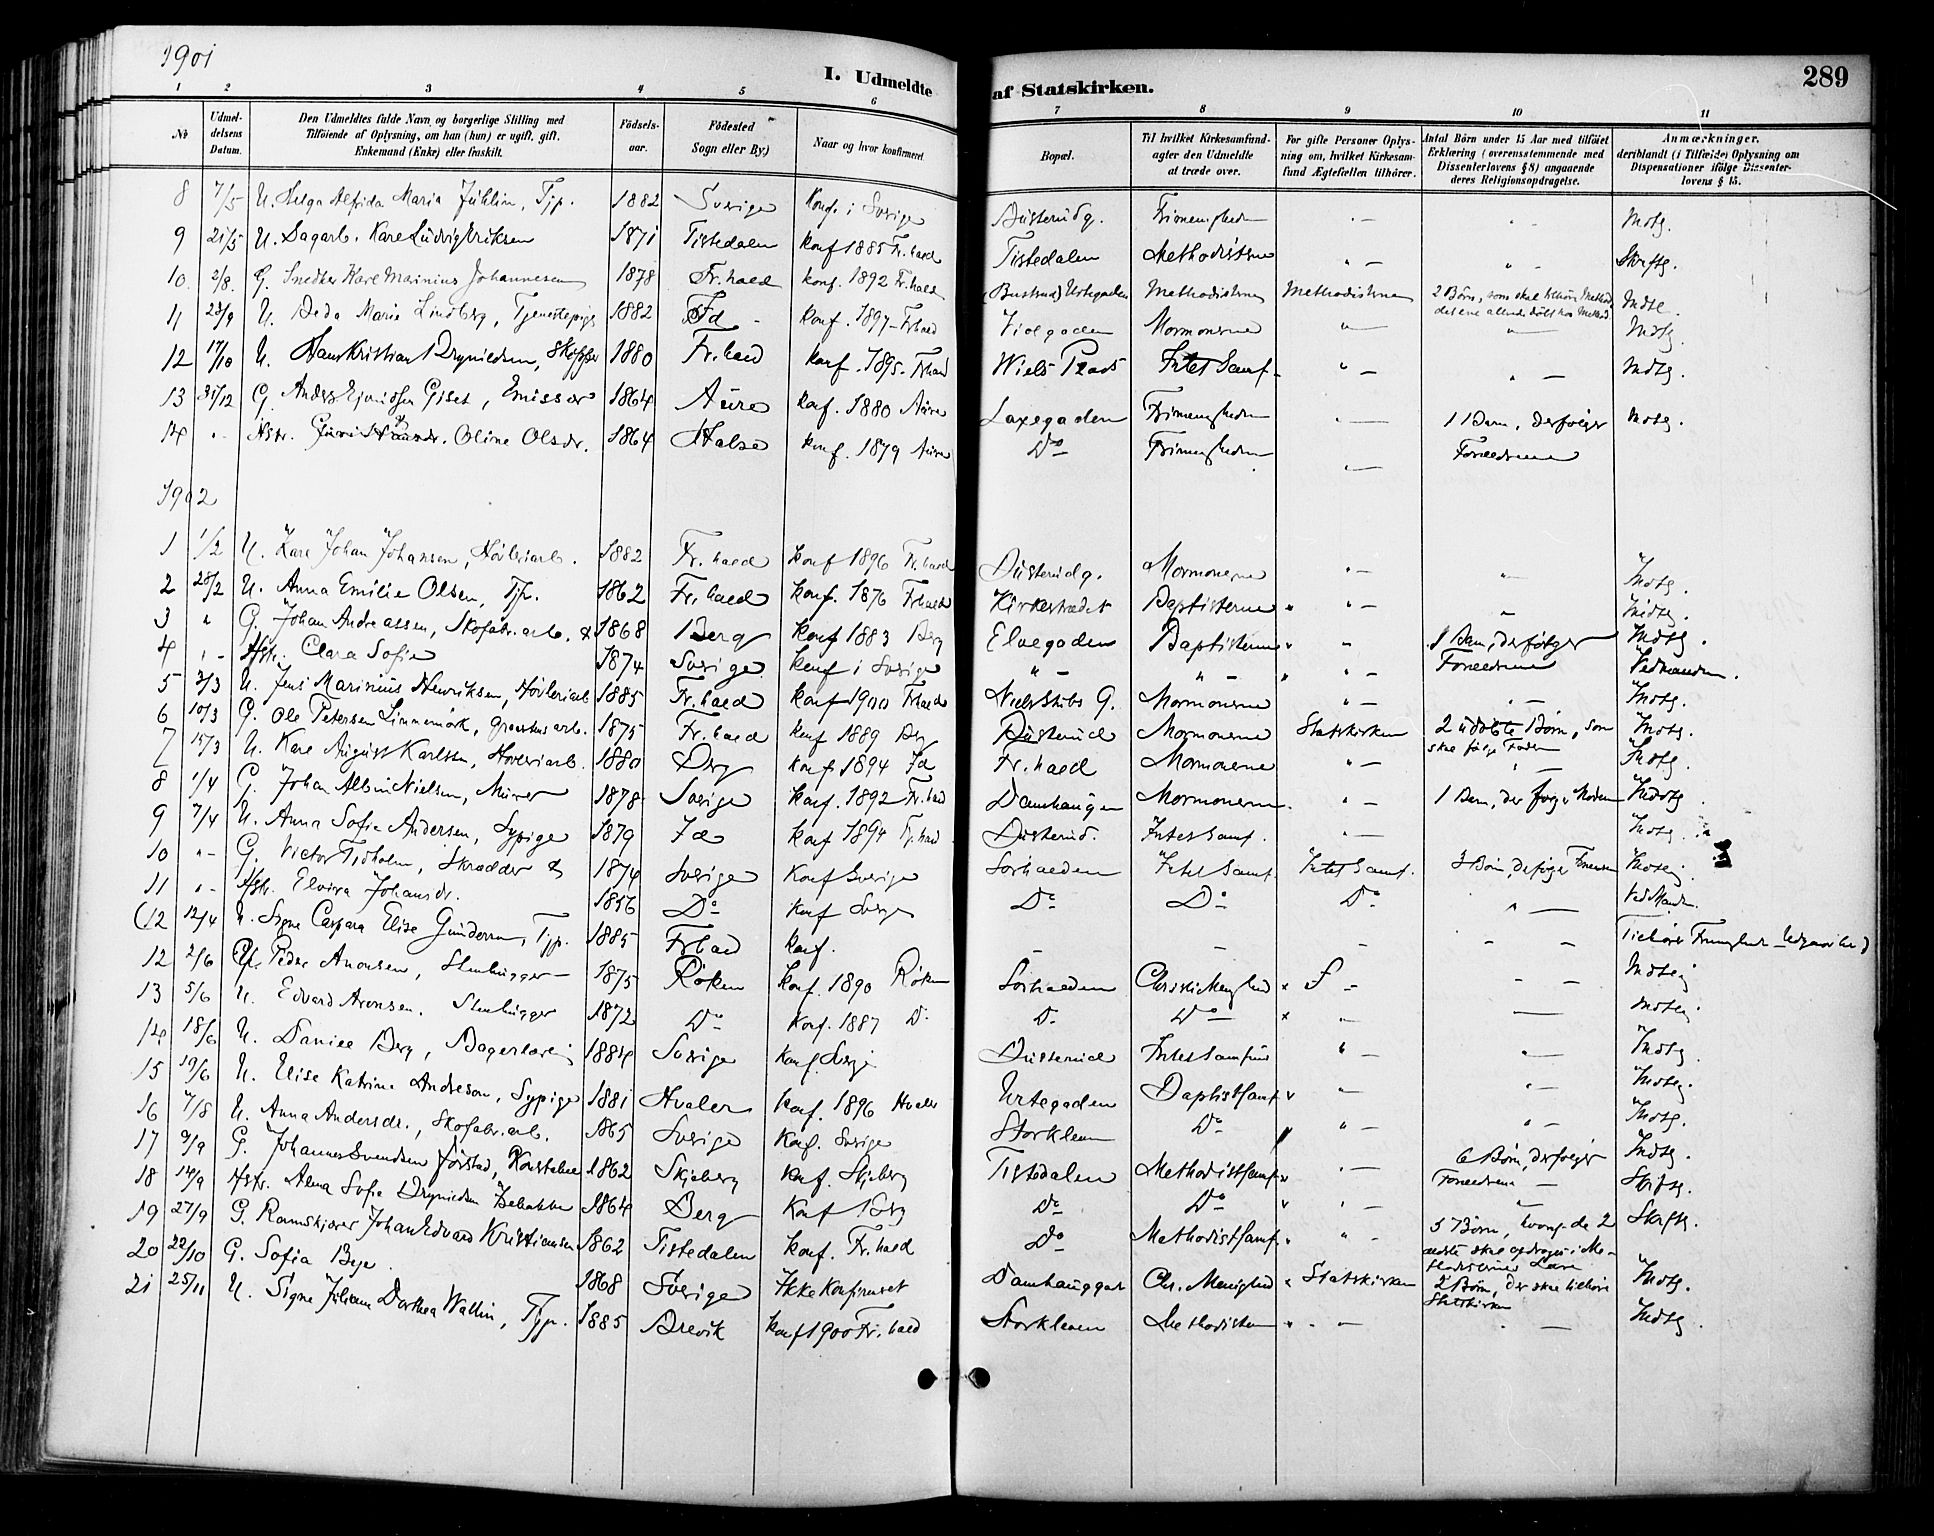 1901
I. Udmeldte af Statskirken.
289
1 2 3 4 5 6 7 8 9 10 11
No
Udmeldelsens Datum.
Den Udmeldtes fulde Navn og borgerlige Stilling med Tilföiende af Oplysning, om han (hun) er ugift, gift, Enkemand (Enke) eller fraskilt.
Födselsaar.
Födested (Sogn eller By.)
Naar og hvor konfirmeret.
Bopæl.
Til hvilket Kirkesamfund agter den Udmeldte at træde over.
For gifte Personer Oplysning om, hvilket Kirkesamfund Ægtefællen tilhörer.
Antal Börn under 15 Aar med tilföiet Erklæring (overensstemmende med Dissenterlovens § 8) angaaende deres Religionsopdragelse.
Anmærkninger, deriblandt (i Tilfælde) Oplysning om Dispensationer ifölge Dissenterlovens § 15.
8 7/5 U. Helga Alfrida Maria Juhlin, Tjp. 1882 Sverige Konf. i Sverige Frimenigheden " — " — Mdtg.
9 21/5 U. Dagarb. Karl Ludvig Eriksen 1871 Tistedalen konf 1885 Fr.hald Tistedalen Methodisterne " — " — Skrftg.
10. 2/8. G. Snedker Karl Marinius Johannesen 1878 Fr.hald konf. 1892 Fr.hald Urtegaden Methodisterne Methodisterne 2 Børn, som skal tilhøre Method. det ene allerede døbt hos Method. Mdtl.
11 28/9 U. Maria Lindberg, Tjenestepige 1882 Id konf. 1897 Frhald Violgaden Mormonerne " — " — Mdtg.
12 17/10 U. Hans Kristian Brynildsen, 1880 Fr.hald konf. 1895. Frhald Niels Plads Intet Samf. " — " — Mdtg.
13 31/12 G. Anders Giset, Emissær 1864 Aure konf. 1880 Aure Laxegaden Frimenigheden " — 1 Barn, der følger Mdtg.
14 " - Hstr. Oline Olsdr. 1864 Halse konf. 1879 Aure Do Frimenigheden " — Forældrene
1902
1 1/2 U. Karl Johan Johansen, Høvleriarb. 1882 Fr.hald konf 1896 Fr.hald Mormonerne " — " — Mdtg.
2 28/2 U. Anna Emilie Olsen, Tjp. 1862 Fr.hald konf. 1876 Frhald Kirkestrædet Baptisterne " — " Mdtg.
3 " G. Johan Andreassen, Skofabr.arb. & 1868 Berg konf 1883 Berg Elvegaden Baptisterne " 1 Barn, der følger Mdtg.
4 " - Hstr. Clara Sofie 1874 Sverige konf i Sverige " — " — " — Forældrene Ved manden.
5 3/3 U. Jens Marinius Henriksen, Høvleriarb 1885 Fr.hald konf 1900 Frhald Niels Stubs G. Mormonerne " — " — Mdtg.
6 10/3 G. Ole Petersen Linnemörk, 1875 Fr.hald konf 1889 Berg Mormonerne Statskirken 2 udøbte Børn, som skal følge Faderen Mdtg.
7 15/3 U. Karl August Karlsen, Høvleriarb. 1880 Berg konf 1894 Id Fr.hald Mormonerne " — " — Mdtg.
8 1/4 G. Johan Albin Nielsen, Murer 1878 Sverige konf. 1892 Fr.hald Damhaugen Mormonerne. " — 1 Barn, der følger Moderen Mdtg.
9 7/4 U. Anna Sofie Andersen, Sypige 1879 Id konf 1894 Fr.hald Intet Samf. " — Mdtg.
10 " - G. Victor Tisholm, Skrædder & 1874 Sverige Konf Sverige Sørhalden Intet Samf. Intet Samf. 3 Børn, der følger Mdtg.
11 " - Hstr. Elvira Johansdr. 1856 Do Konf Sverige Do Do Do " — Ved Manden.
(12 12/4 U. Signe Caspara Elise Gundersen, Tjp. 1885 Frhald konf. — — — — Tilhører Frimenighed )
12 2/6 Peder Aronsen, Stenhugger 1875 Röken konf. 1890 Röken Sørhalden Christi Menighed — — Mdtg
13 5/6 U. Edvard Aronsen, Stenhugger 1872 Do Konf. 1887 Do Do Do " — Mdtg
14 18/6 U. Daniel Berg, 1884 Sverige Konf. Sverige Intet Samfund " — " — Mdtg.
15 19/6 U. Elise Katrine Andresen, Sypige 1881 Hvaler konf. 1896 Hvaler Urtegaden Baptistsamf. " — " — Mdtg.
16 7/8 U. Anna Andersdr., Skofabr.arb. 1865 Sverige Konf. Sverige Storkleven Do " — " — Mdtg.
17 9/9 G. Johannes Svendsen Jörstad, Konstabel 1862 Skjeberg konf. Skjeberg Tistedalen Methodistsamf. " — 6 Børn, der følger Forældrene Mdtg.
18 14/9 Hstr. Alma Sofie Brynildsen 1864 Berg Konf Berg Do Do " — " — Skriftg.
19 27/9 G. Johan Edvard Kristiansen 1862 Tistedalen konf. Fr.hald Do Methodistsamf. " — 5 Børn, hvoraf de 2 ældste skal opdrages i Methodisternes Lære Skrftg.
20 22/10 G. Sofia Bye. 1868 Sverige Ikke konfirmeret Damhauggat Chr. Menighed Statskirken 2 Børn, der skal tilhøre Statskirken Mdtg.
21 25/11 U. Signe Juliane Dorthea Wallin, Tjp. 1885 Brevik konf 1900 Fr.hald Storkleven Methodisterne " — " — Mdtg.